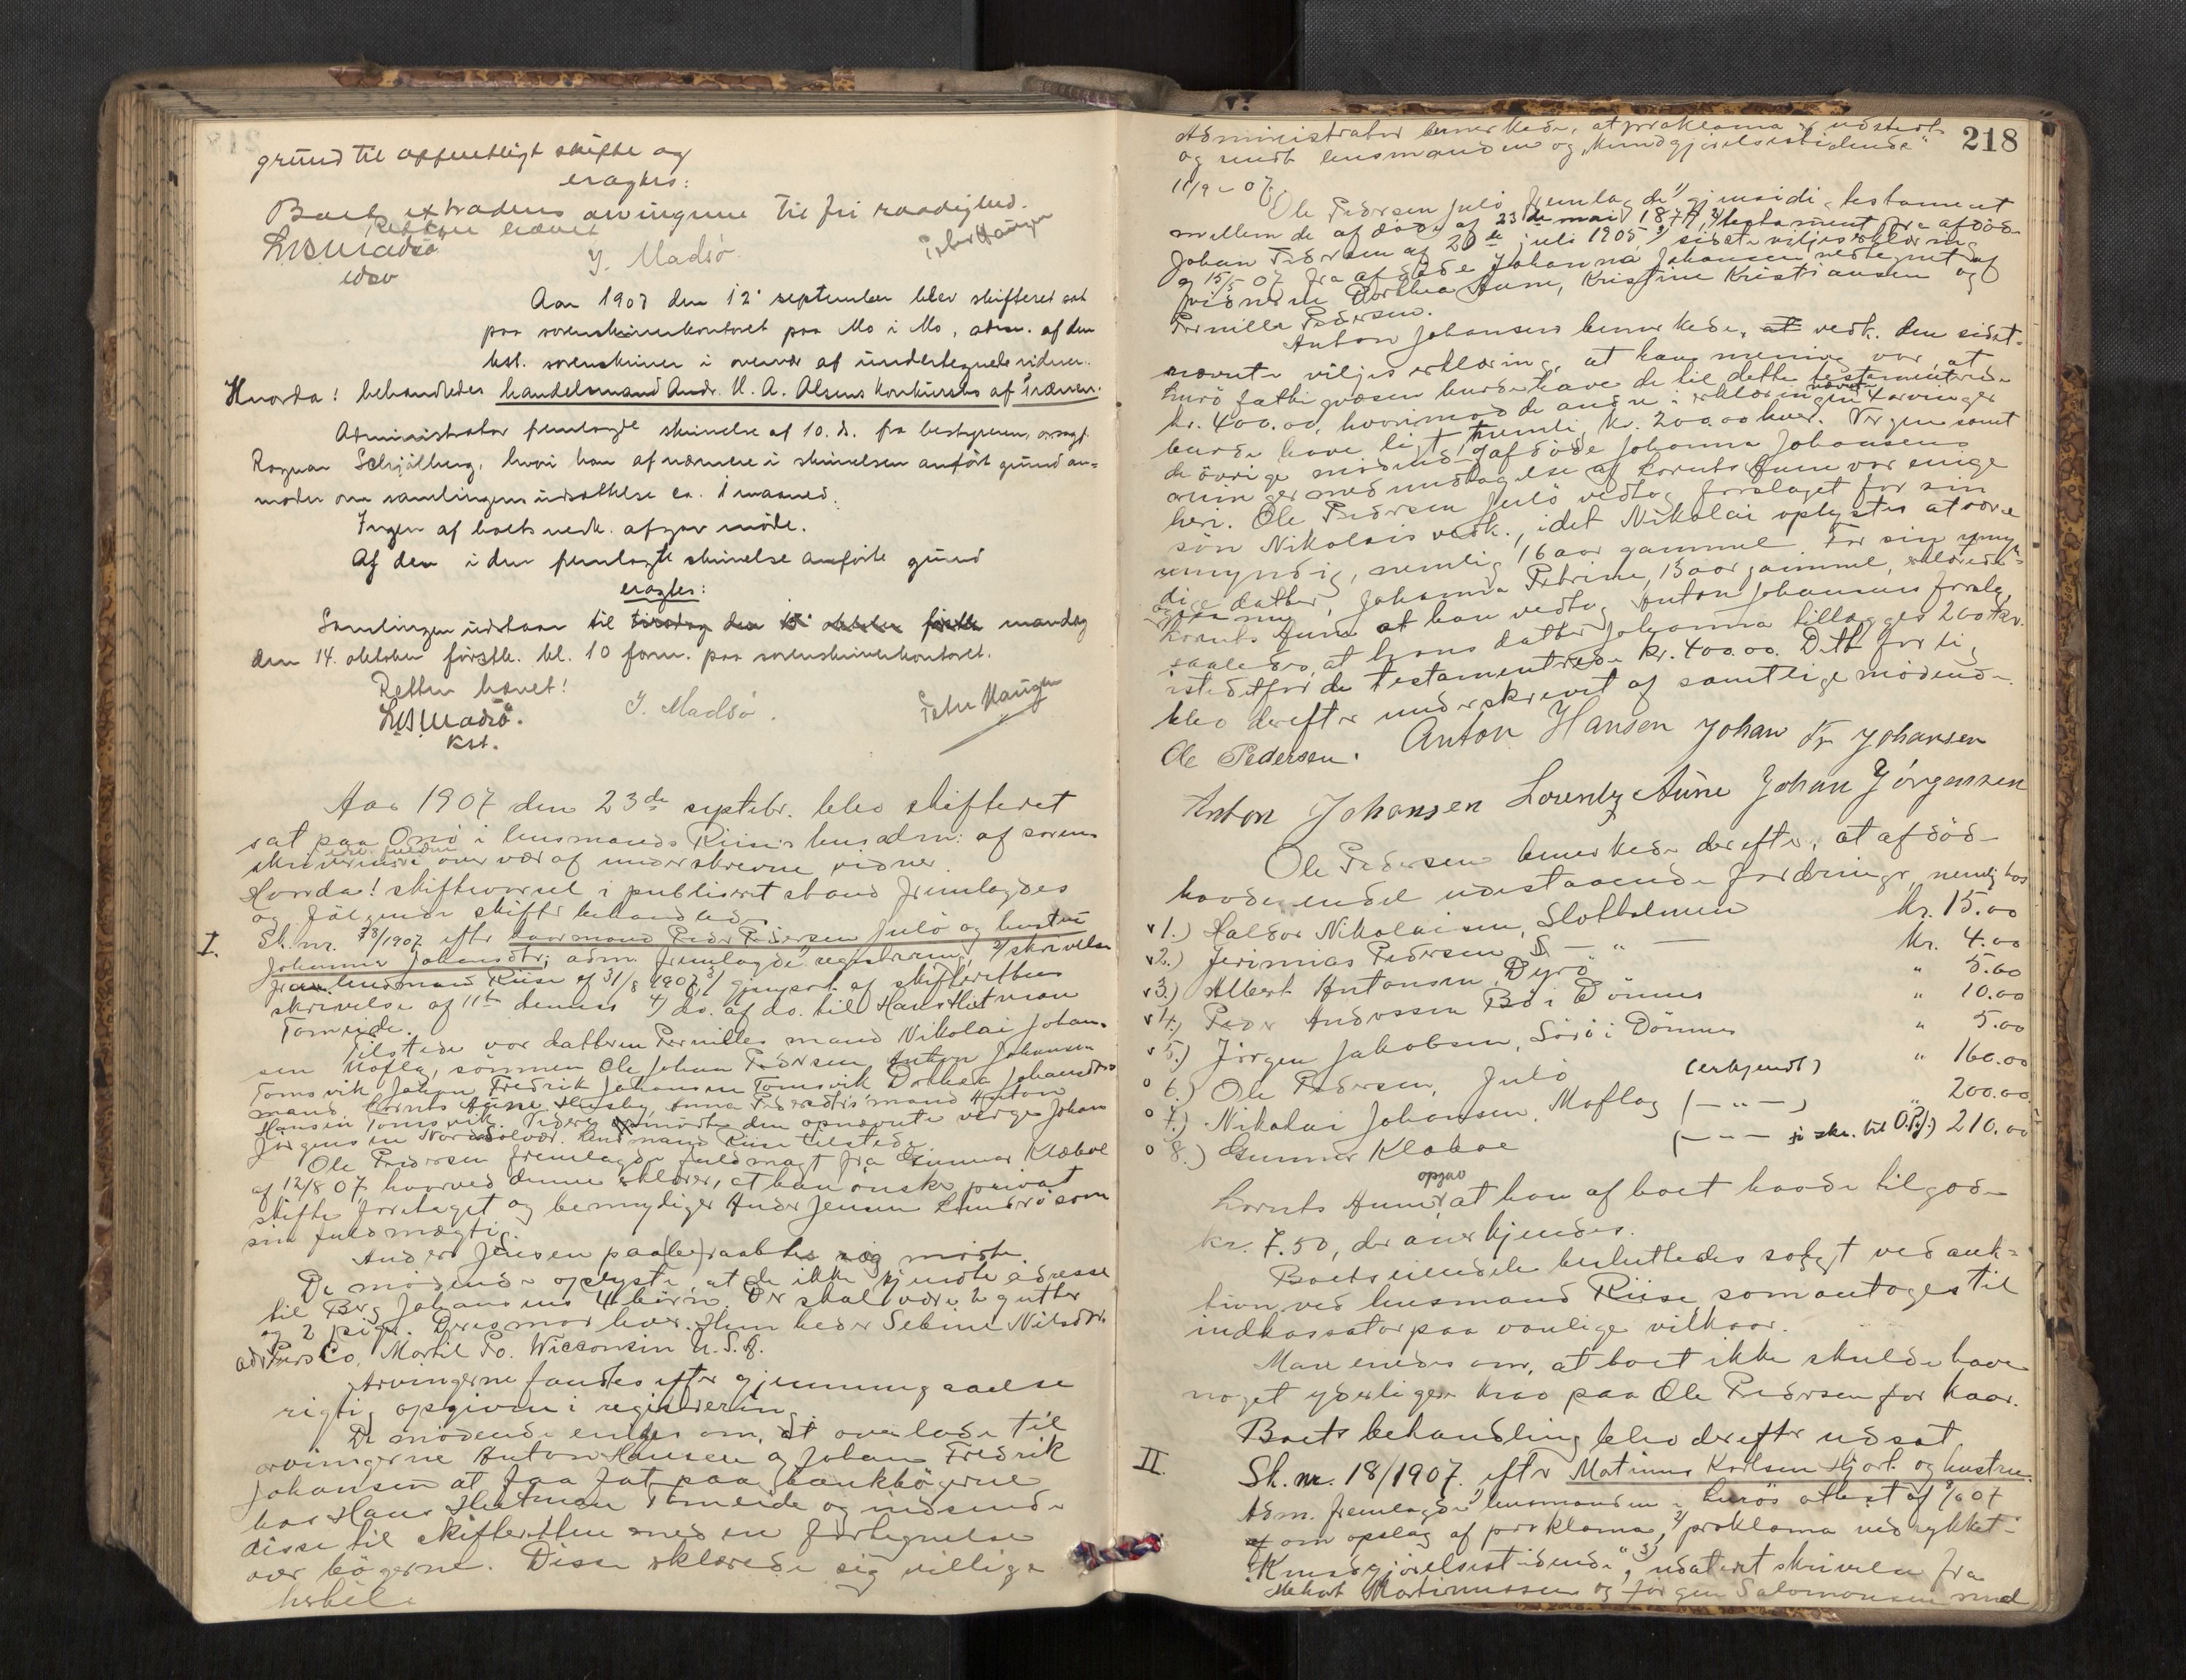 grund til offentligt skifte og
eragtes:
Boet extraderes arvingerne til fri raadighed.
Retten hævet
LMBMadsö I. Madsö. Peter Haugen
edsv
Aar 1907 den 12. september blev skifteret sat
paa sorenskriverkontoret paa Mo i Mo, adm. af den
kst. sorenskriver i overvær af undertegnede vidner.
Hvorda! behandledes handelsmand Andr. H. A. Olsens konkursbo af Trænen.
Administrator fremlagde skrivelse af 10. ds. fra bestyreren, orsagf.
Ragnar Schjölberg, hvori han af nærmere i skrivelsen anfört grund an=
moder om samlingens udsættelse ca. 1 maaned.
Ingen af boets vedk. afgav möde.
Af den i den fremlagte skrivelse anförte grund
eragtes:
Samlingen udstaar til tirsdag den 15. oktober förstk. mandag
den 14. oktober förstk. kl. 10 form. paa sorenskriverkontoret.
Retten hævet!
LMBMadsö. I. Madsö. Peter Haugen
kst.
Aar 1907 den 23de septebr. blev skifteret
sat paa Onö i lensmand Riises hus adm: af soren-
skriveren i overvær af underskrevne vidner.
Hvorda! skiftevarsel i publiceret stand fremlagdes
og fölgende skifter behandledes
I. Sk. nr. 73/1907 efter kaarmand Peder Pedersen Julö og hustru
Johanna Johansdtr; adm. fremlagde 1) registrering, 2) skrivelse
fra lensmand Riise af 31/8 1907, 3) gjenpart af skifterettens
skrivelse af 11te dennes 4) do. af do. til Hans Hutman
Tomeide.
Tilstede var datteren Pernilles mand Nikolai Johan-
sen Moflag, sönnen Ole Johan Pedersen, Anton Johansen
Tomsvik, Johan Fredrik Johansen Tomsvik Dorthea Johansdtrs
mand Lornts Aune Husby, Anna Pedersdtrs mand Anton
Hansen Tomsvik. Videre mödte den opnævnte verge Johan
Jörgensen Nordsolvær. Lensmand Riise tilstede
Ole Pedersen fremlagde fuldmagt fra Gunnar Klæboe
af 12/8 07, hvorved denne erklærer, at han önsker privat
skifte foretaget og bemyndiger Anders Jensen Lundrö som
sin fuldmægtig.
Anders Jensen paa(be)raabtes og mödte.
De mödende oplyste, at de ikke kjendte adresse
til Berg Johansens 4 börn. Der skal være 2 gutter
og 2 piger. Deres mor lever. Hun heder Sebine Nilsdtr.
adr. Pers Co. Martil Po. Wisconsin U.S.A.
Arvingerne fandtes efter gjennemgaaelse
rigtig opgiven i registrering
De mödende enedes om, at overlade til
arvingerne Anton Hansen og Johan Fredrik
Johansen at faa fat paa bankbögerne
hos Hans Hutman Tomeide og indsende
disse til skifteretten med en fortegnelse
over bögerne. Disse erklærede sig villige
hertil.
218
Administrator bemerkede, at proklama er udstedt
og sendt lensmanden og "Kundgjörelsestidende"
11/9 - 07.
Ole Pedersen Julö fremlagde 1) gjensidig testament
mellem de afdöde af 23de mai 1877, 2) testament fra afdöde
Johan Pedersen af 20de juli 1905 3) sidste viljeserklæring
af 15/5 07 fra afdöde Johanna Johansen vedtegnet af
vidnerne Dorthea Aune, Kristine Kristiansen og
Pernille Pedersen.
Anton Johansens bemerkede, at vedk. den sidst-
nævnte viljeserklæring, at hans mening var, at
Lurö fattigvæsen burde have de til dette testamenterede
kr. 400.00, hvorimod de andre i erklæringen nævnte 4 arvinger
burde have ligt nemlig kr. 200.00 hver. Vergen samt
de övrige mödende af afdöde Johanna Johansens
arvinger med undtagelse af Lornts Aune var enige
heri. Ole Pedersen Julö vedtog forslaget for sin
sön Nikolais vedk., idet Nikolai oplystes at være
umyndig, nemlig 16 aar gammel. For sin umyn-
dige datter, Johanna Petrine, 13 aar gammel, erklærede
Lornts Aune at han vedtog Anton Johansens forslag
saaledes, at hans datter Johanna tillægges 200 kr.
istedetfor de testamenterede kr. 400.00. Dette forlig
blev derefter underskrevet af samtlige mödende.
Ole Pedersen. Anton Hansen Johan Fr Johansen
Anton Johansen Lorentz Aune Johan Jörgensen
Ole Pedersen bemerkede derefter, at afdöde
havde endel udestaaende fordringer, nemlig hos
v 1.) Haldor Nikolaisen, Slotholmen kr. 15.00
v 2.) Jerimias Pedersen S — " — kr. 4.00
v 3.) Albert Antonsen, Dyrö " 5.00
v 4.) Peder Andersen Bö i Dönnes " 10.00
v 5.) Jörgen Jakobsen, Sörö i Dönnes " 5.00
o 6.) Ole Pedersen, Julö (erkjendt) " 160.00
o 7.) Nikolai Johansen, Moflag (— " —) " 200.00
o 8.) Gunnar Klæboe (— " — i skr. til O.P.J.) 210.00
Lornts Aune opgav at han af boet havde tilgode
kr. 7.50, der anerkjendes.
Boets eiendele besluttedes solgt ved auk=
tion ved lensmand Riise som antoges til
indkassator paa vanlige vilkaar.
Man enedes om, at boet ikke skulde have
noget yderligere krav paa Ole Pedersen for kaar.
Boets behandling blev derefter udsat
II. Sk. nr. 18/1907. efter Matinus Karlsen Hjort og hustru.
Adm. fremlagde 1) lensmanden i Lurös attest af 9/6 07
om opslag af proklama, 2) proklama ved rykket i
"Kundgjörelsestidende", 3) udatert skrivelse fra
Hekort Martinussen og Jörgen Salomonsen med